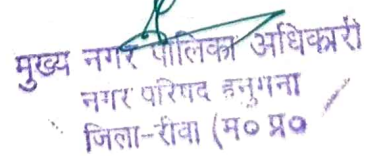 मुख्य नगर पालिका अधिकारी
नगर परिषद हनुमना
जिला-रीवा (म० प्र०